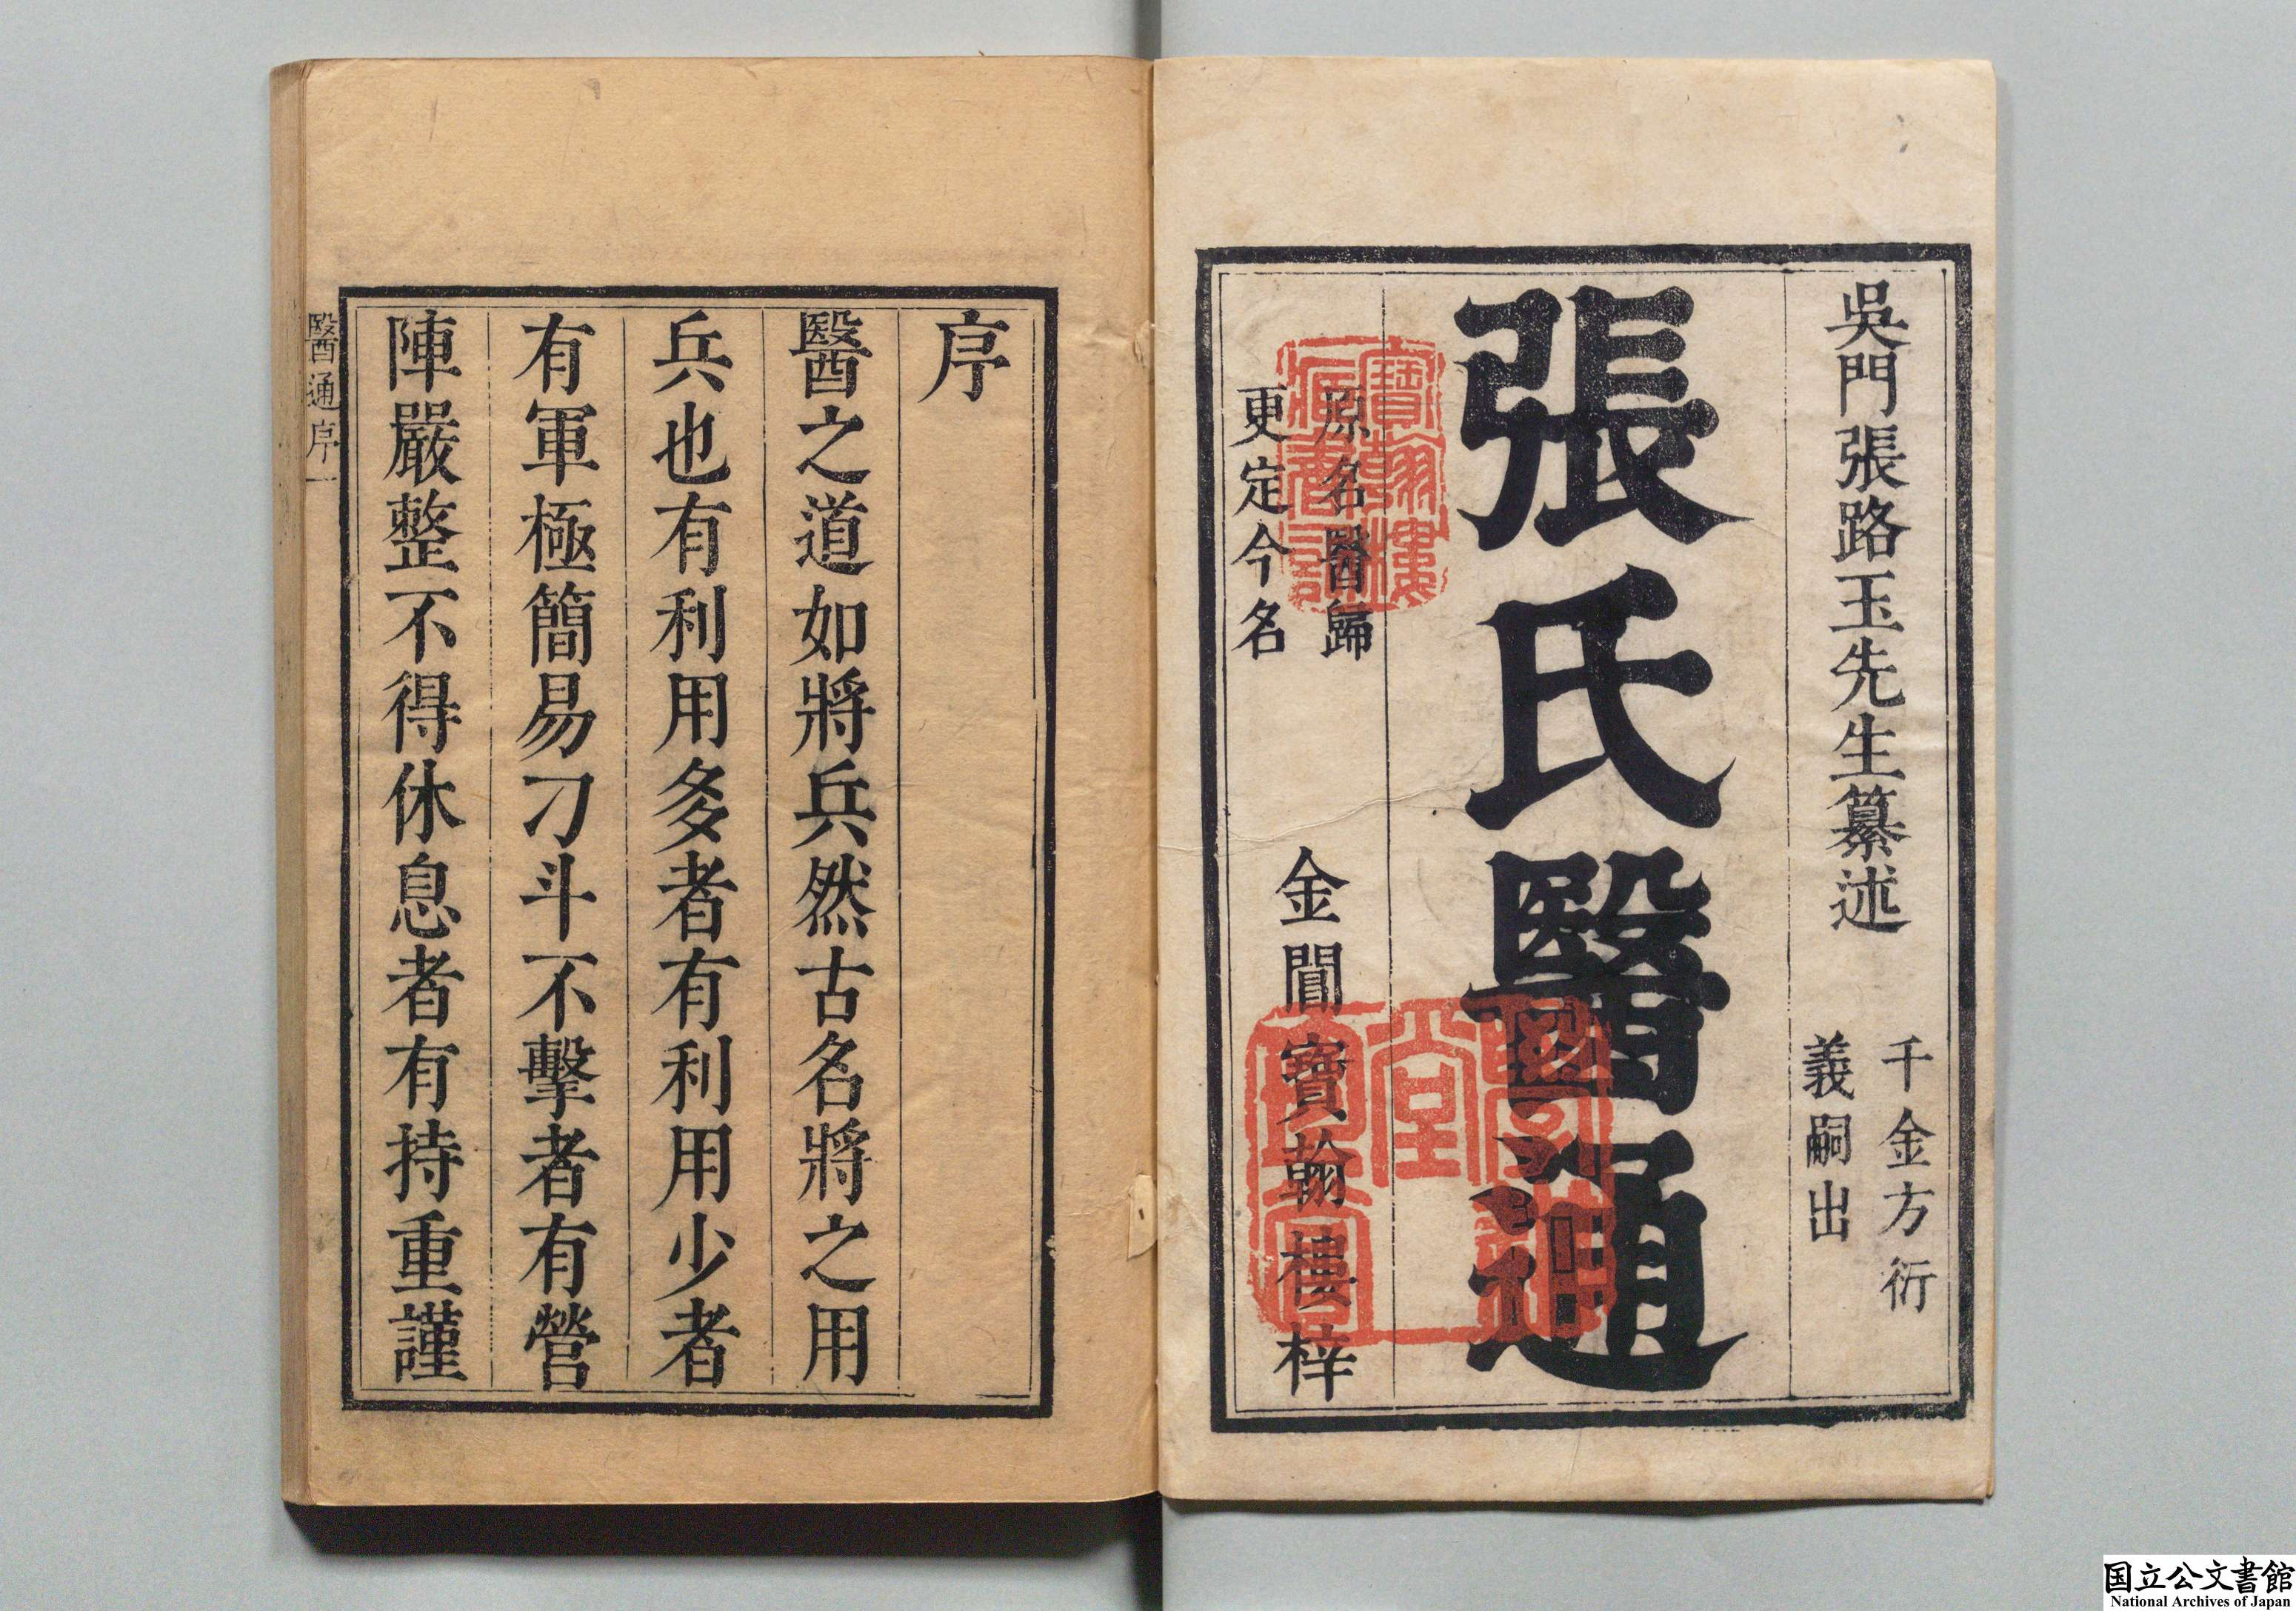 吳門張路玉先生纂述
千金方衍
義嗣出
張氏醫通
原名醫歸
更定今名
金閶寶翰樓梓
寶翰樓
藏書記
序
醫之道如將兵然古名將之用
兵也有利用多者有利用少者
有軍極簡易刁斗不擊者有營
陣嚴整不得休息者有持重謹
醫通序
一
国立公文書館
National Archives of Japan